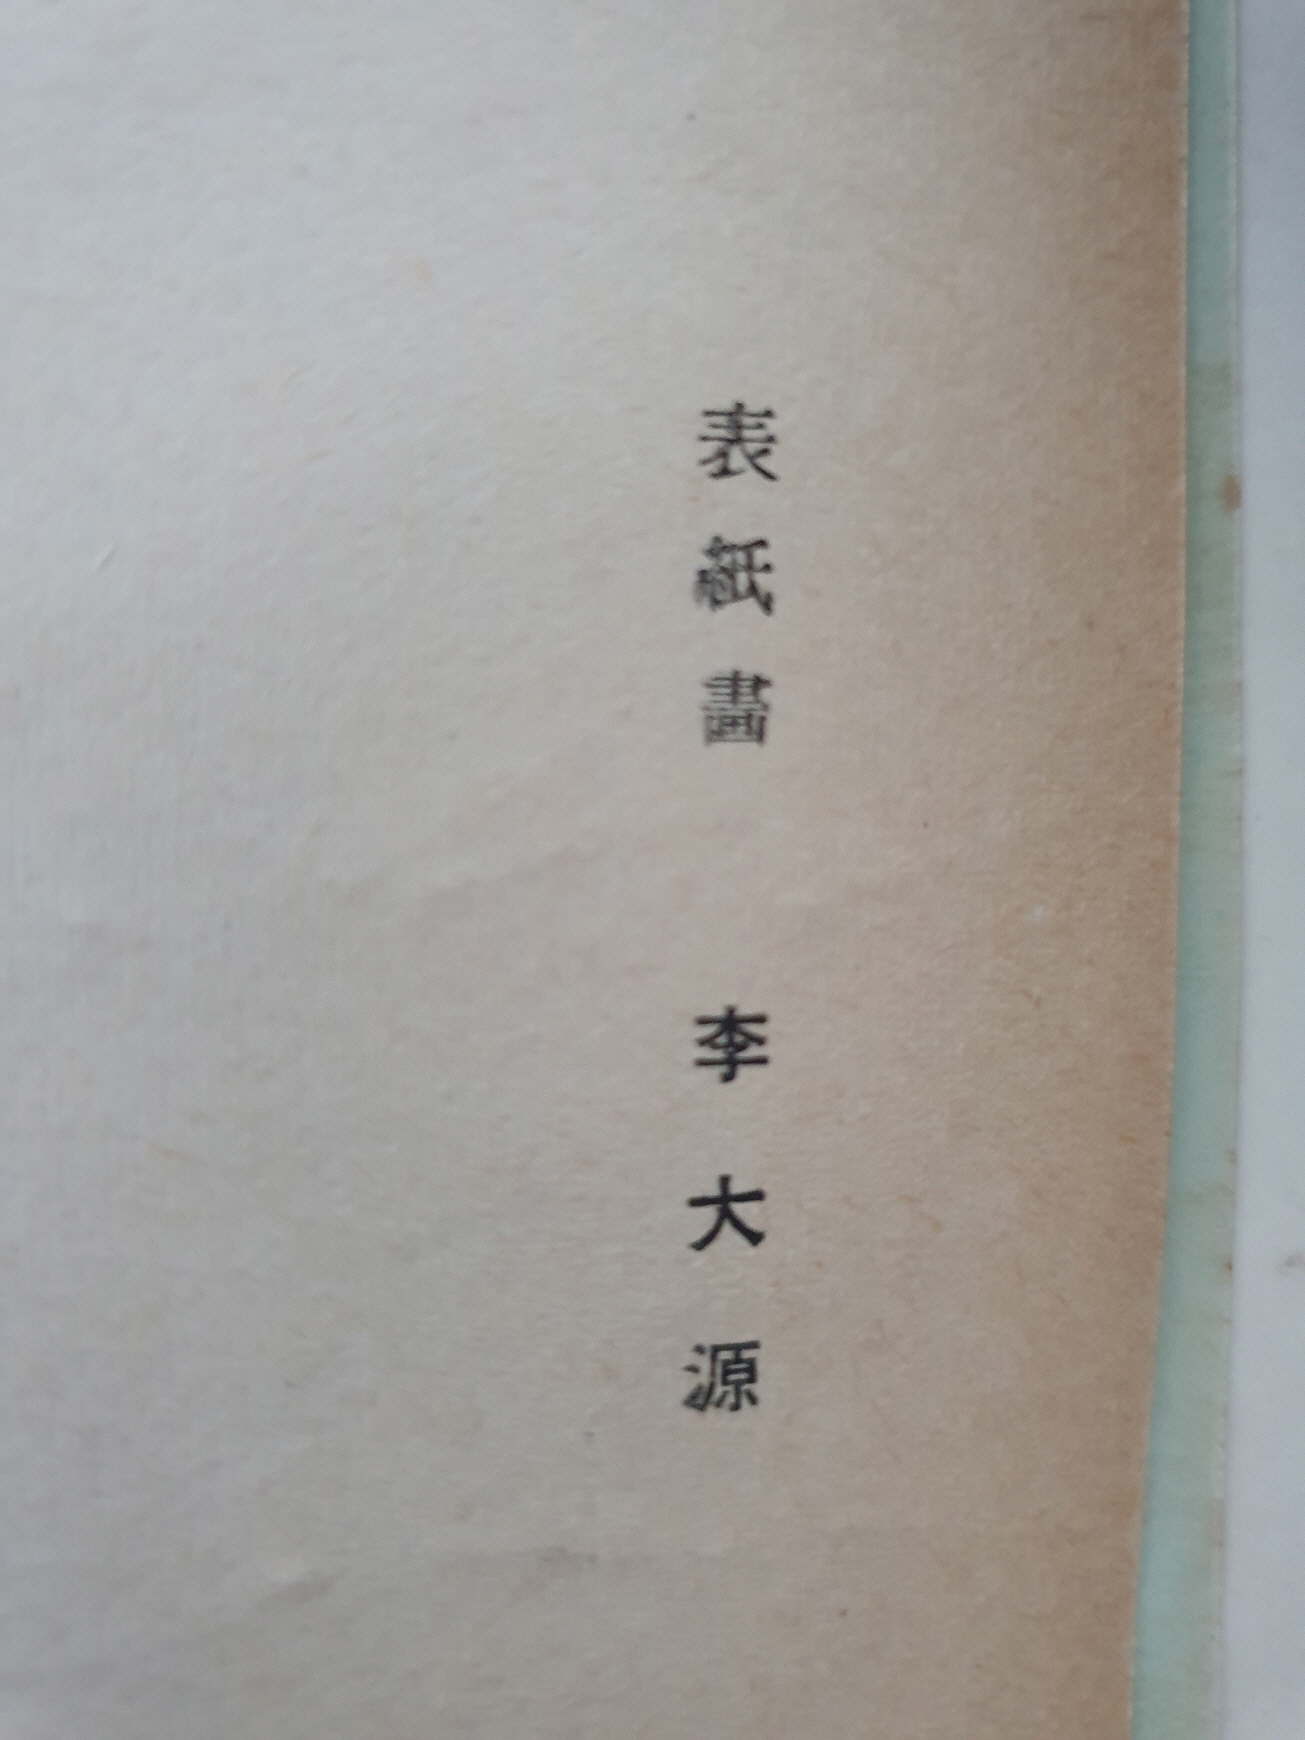 表紙畵 李大源